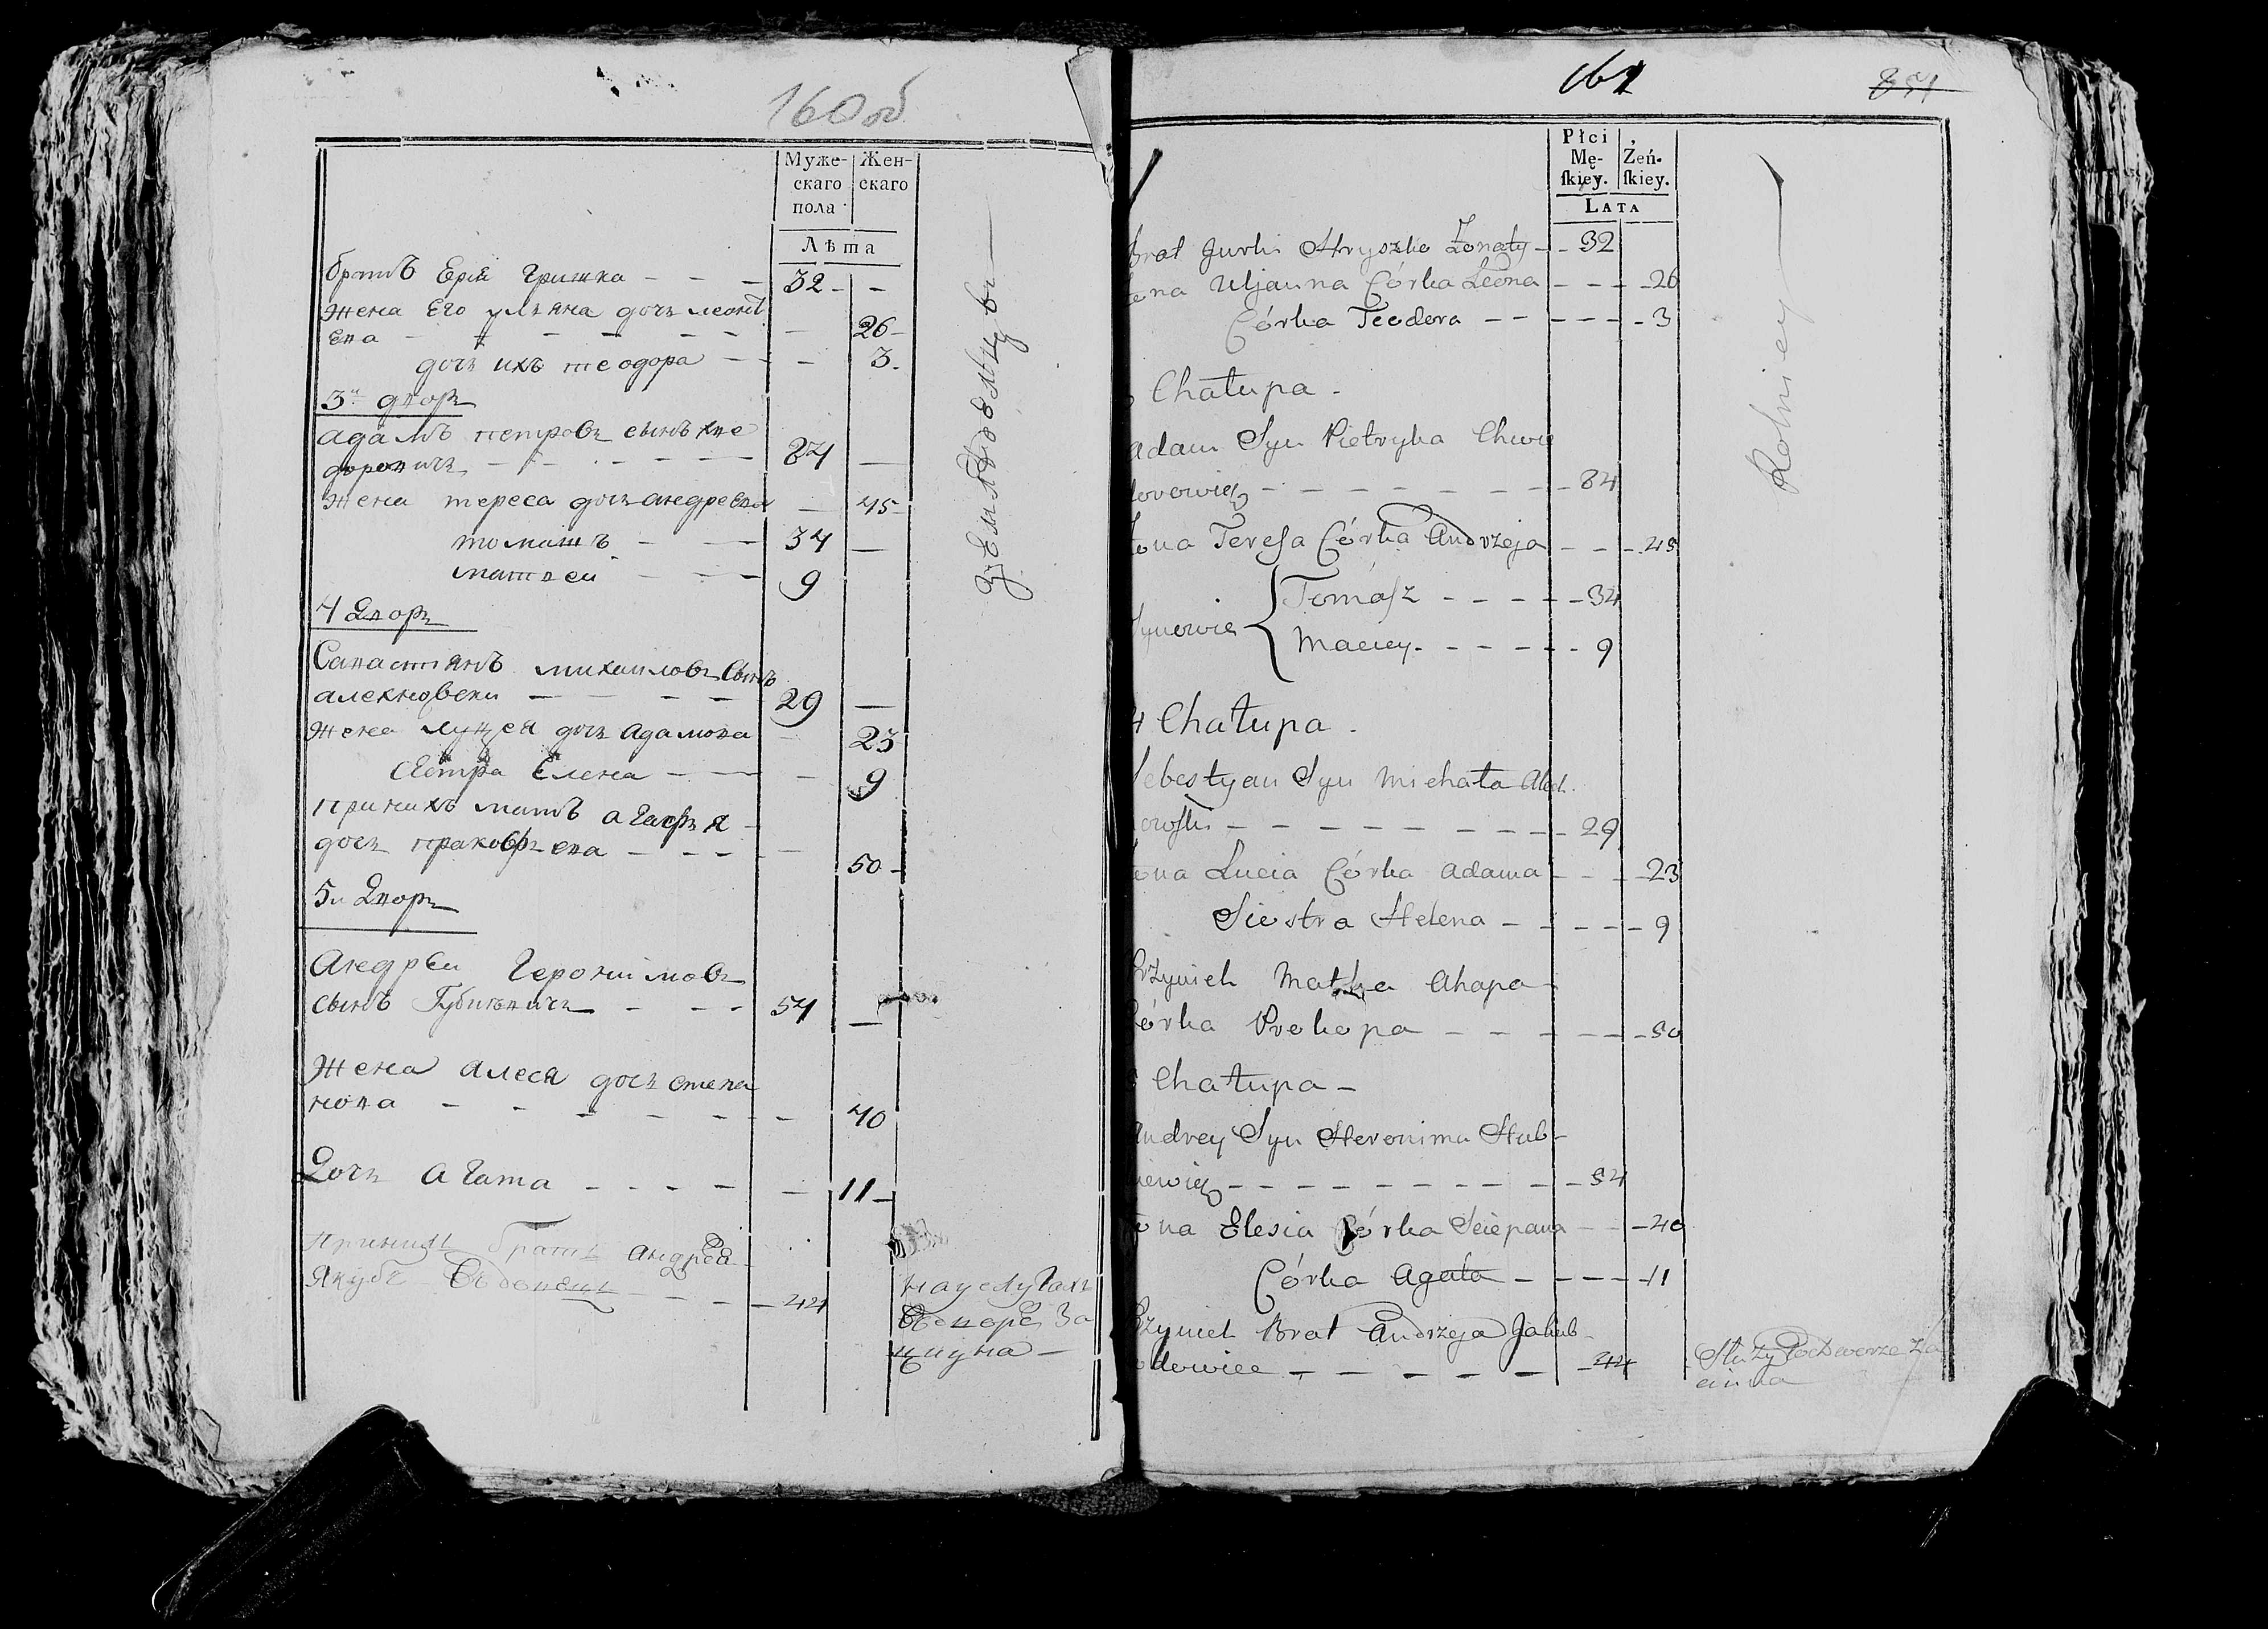 160 об
Муже- Жен-
скаго скаго
пола
Лѣта
братъ Ерія Гришка - - - 32 - -
жена Его ульяна дочь леонь
ева - - - - - - 26 -
дочь ихъ теодора - - - 3.
3й двор
адамъ петровъ сынъ хве
доровичъ - - - - - 84 -
жена тереса дочь андреева - 45 -
томашъ - - 34 -
матвей - - 9
4 Двор
Савастянъ михаиловъ Сынъ
алехновски - - - - 29 -
жена луцея дочь адамова - 23
сестра Елена - - - 9
принихъ мать агафья -
дочь прокофьева - - - - 50 -
5й Двор
Андреи Геронимовъ
сынъ Губиневичъ - - - 54 -
Жена алеся дочь степа
нова - - - - - - 40
Дочь агата - - - - - 11 -
принихъ братъ андрея
Якубъ Вдовецъ - - - 44
науслугахъ
Водворе За
циуна -
земледѣльцы
161
851
Płci
Mę- Żeń-
ſkiey. ſkiey.
LATA
Brat Jurki Hryszko Żonaty - - 32
żona Uljanna Córka Leona - - - - 26
Córka Teodora - - - - - - 3
Chałupa -
Adam Syn Pietryka Chwie
dorowicz - - - - - - - - 84
żona Tereſa Córka Andrzeja - - - 45
Synowie { Tomaſz - - - - - 34
Maciey - - - - - - 9
4 Chałupa -
Sebestyan Syn Michała Alech
nowſki - - - - - - - - - 29
żona Lucia Córka Adama - - - 23
Siestra Helena - - - - - 9
Przynich Matka Ahapa -
Córka Prokopa - - - - - - 50
Chałupa -
Andrey Syn Heronima Hub-
iniewicz - - - - - - - - - - 54
żona Elesia Córka Sciepana - - - 40
Córka Agata - - - - - 11
Przynich Brat Andrzeja Jakub -
Wdowiec - - - - - - 44
Służy Podworze Za
ciuna
Rolniey